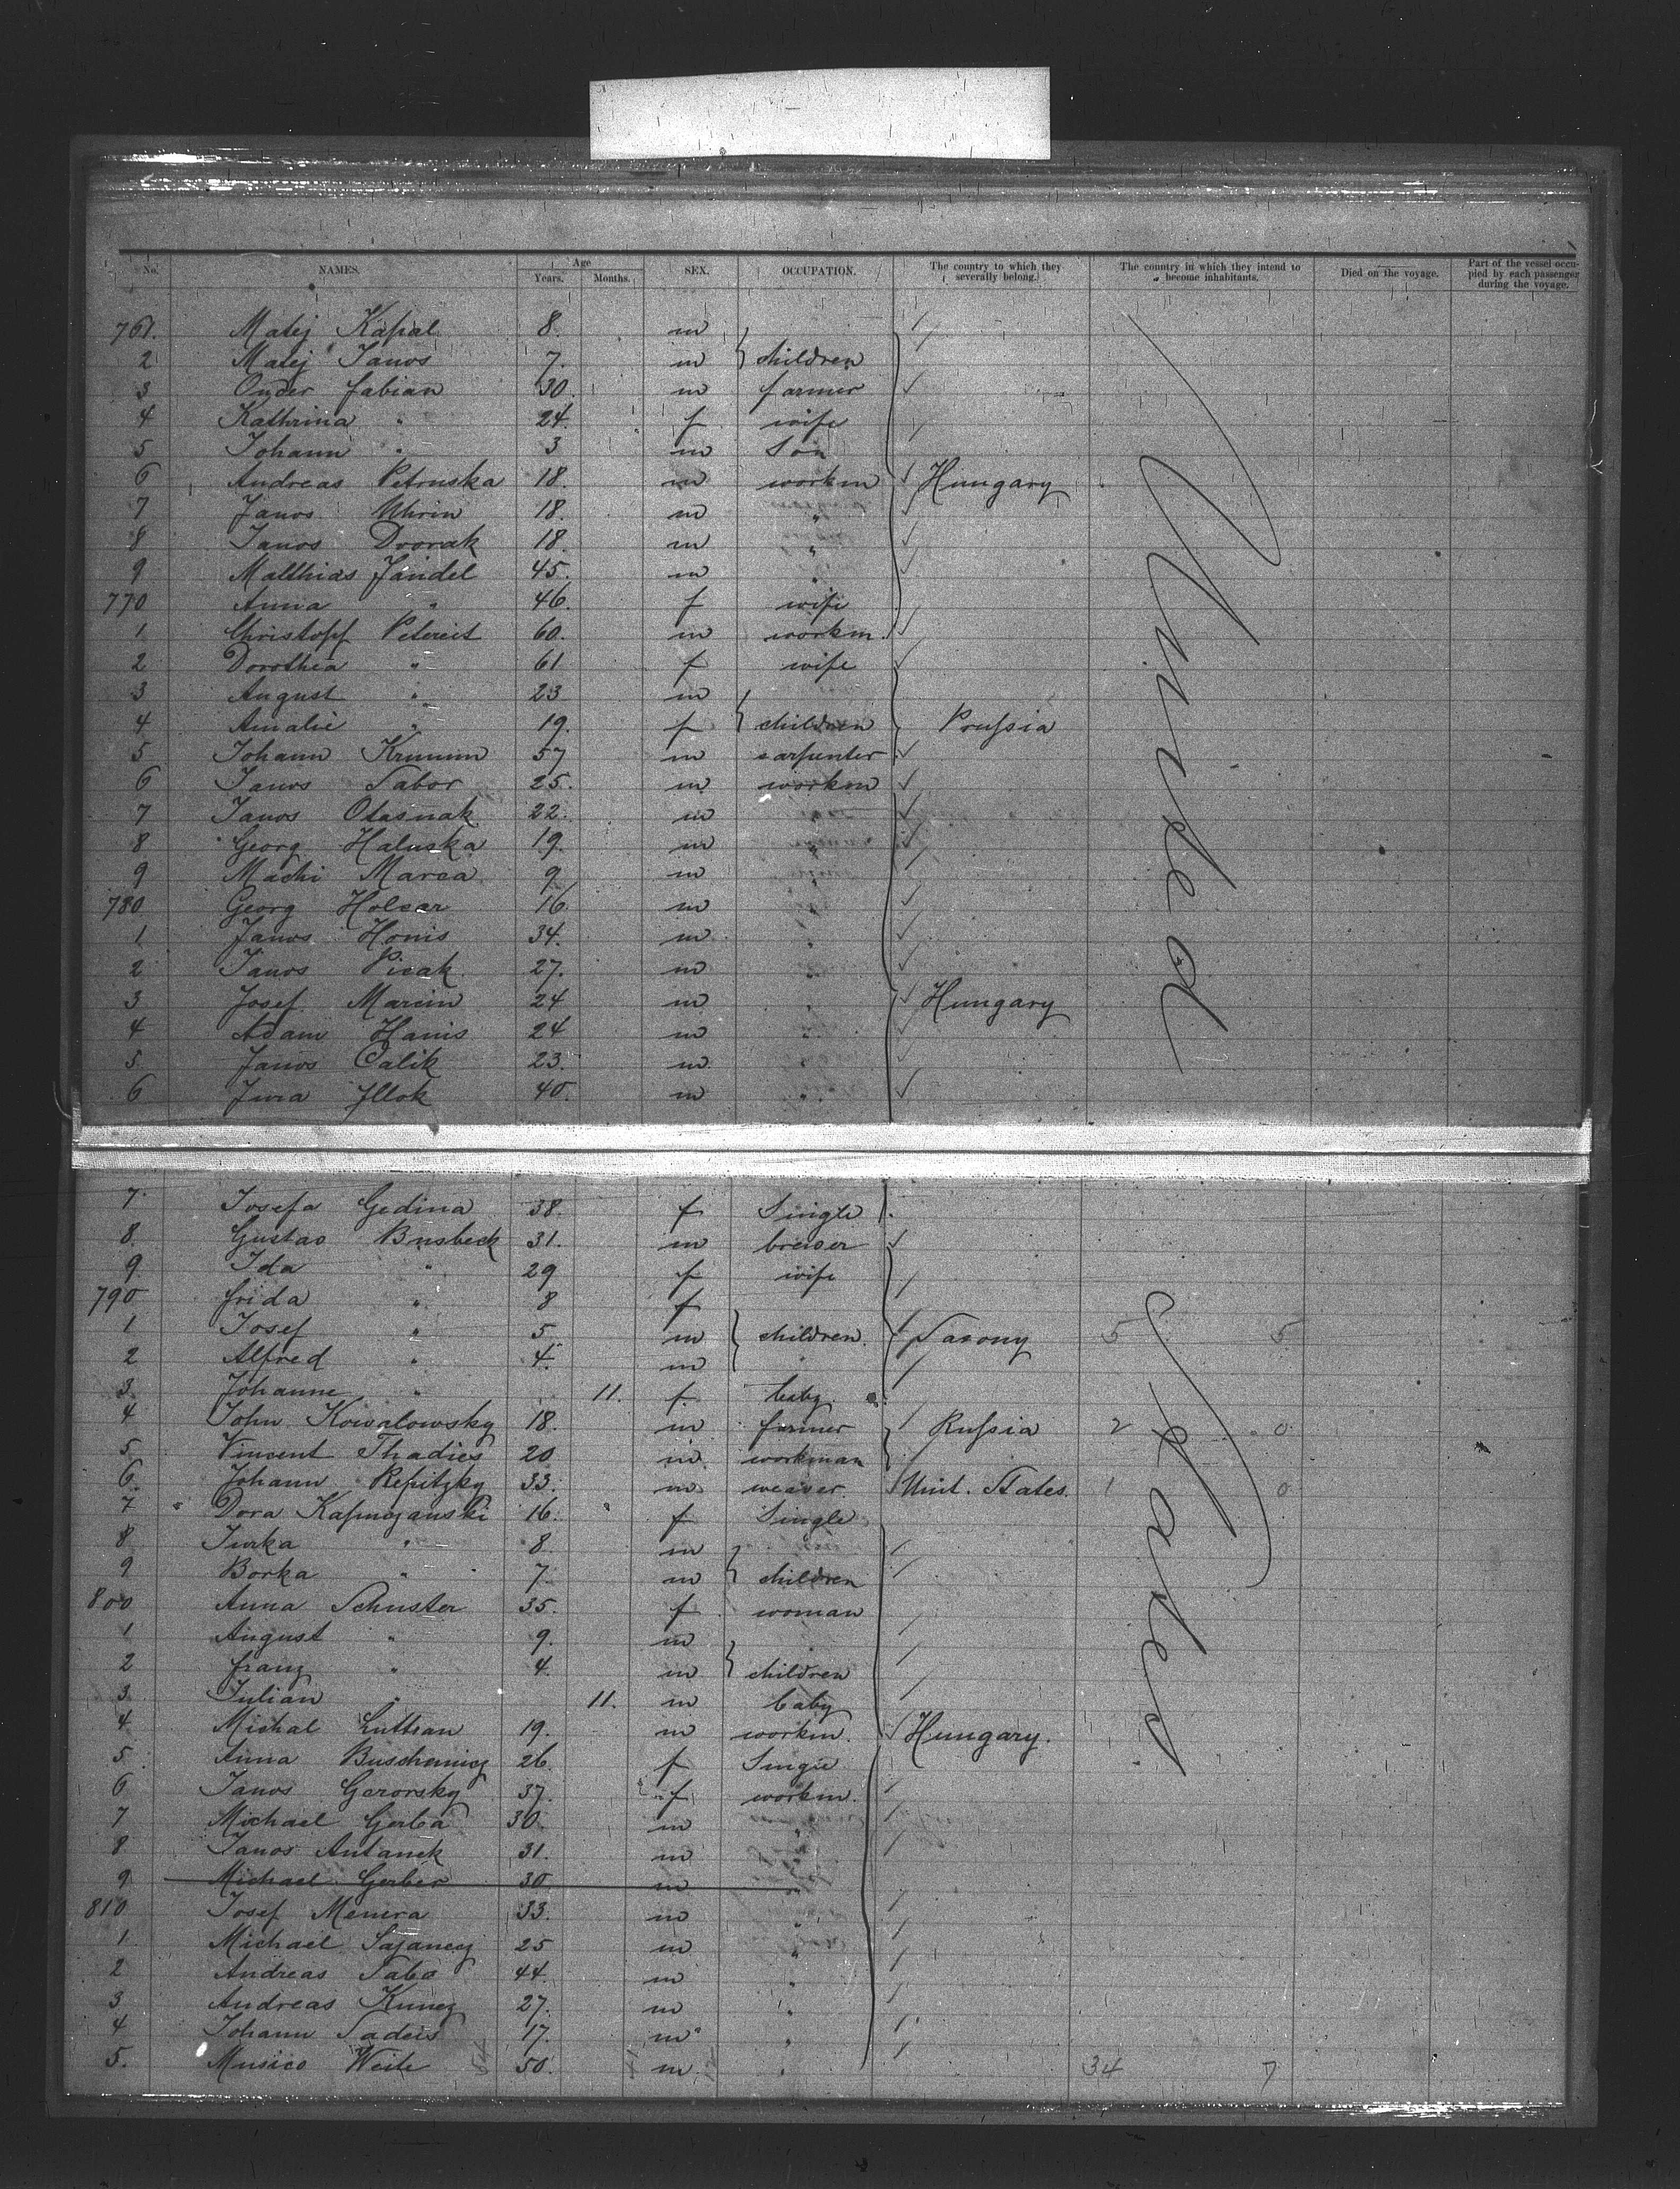 No. NAMES. Age Years. Months. SEX. OCCUPATION. The country to which they severally belong. The country in which they intend to become inhabitants. Died on the voyage. Part of the vessel occupied by each passenger during the voyage.
761. Matej Kapal 8. m
2 Matej Janos 7. m children
3 Onder Fabian 30. m farmer
4 Kathrina " 24. f wife
5 Johann " 3 m Son
6 Andreas Petruska 18. m workm Hungary
7 Janos Uhrin 18. m "
8 Janos Dvorak 18. m "
9 Matthias Jandel 45. m "
770 Anna " 46. f wife
1 Christopf Petereit 60. m workm.
2 Dorothea " 61 f wife
3 August " 23 m
4 Amalie " 19. f children Prussia
5 Johann Krumm 57 m carpenter
6 Janos Sabor 25. m workm
7 Janos Otasnak 22. m "
8 Georg Haluska 19. m "
9 Machi Marca 9 m
780 Georg Holcar 16. m
1 Janos Honis 34. m "
2 Janos Picak 27. m "
3 Josef Marcin 24 m " Hungary
4 Adam Hanis 24 m "
5 Janos Calik 23. m "
6 Jura Illok 40. m "
United
7. Josefa Gedina 38. f Single
8. Gustav Busbeck 31. m brewer
9. Ida " 29 f wife
790 Frida " 8 f
1 Josef " 5 m children Saxony 5 5
2 Alfred " 4. m
3. Johanne " 11. f. baby
4 John Kowalowsky 18. m farmer Russia 2 0
5. Vincent Thadies 20 m workman
6. Johann Repitzky 33. m weaver Unit. States. 1 0
7. Dora Kapmojanski 16. f Single
8 Jurka " 8. m
9 Borka " 7 m children
800 Anna Schuster 35. f woman
1 August " 9. m
2 Franz " 4. m children
3 Julian " 11. m baby
4. Michal Luttran 19. m workm. Hungary.
5. Anna Buschenicz 26 f Single
6 Janos Gerorsky 37. f workm.
7 Michael Gerba 30. m "
8. Janos Antanek 31. m "
9. Michael Gerber 30 m "
810 Josef Menera 33. m "
1 Michael Sajanecz 25 m "
2 Andreas Sabo 44. m "
3 Andreas Kunez 27. m "
4 Johann Sadeis 17. m "
5. Musico Weite 50. m " 34 7
States